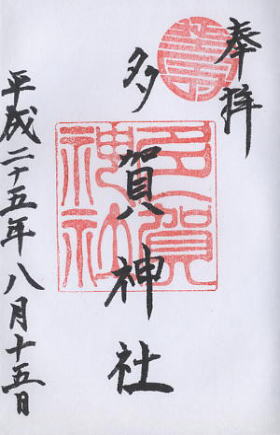 奉拝
壽
多賀神社
多賀神社
平成二十五年八月十五日